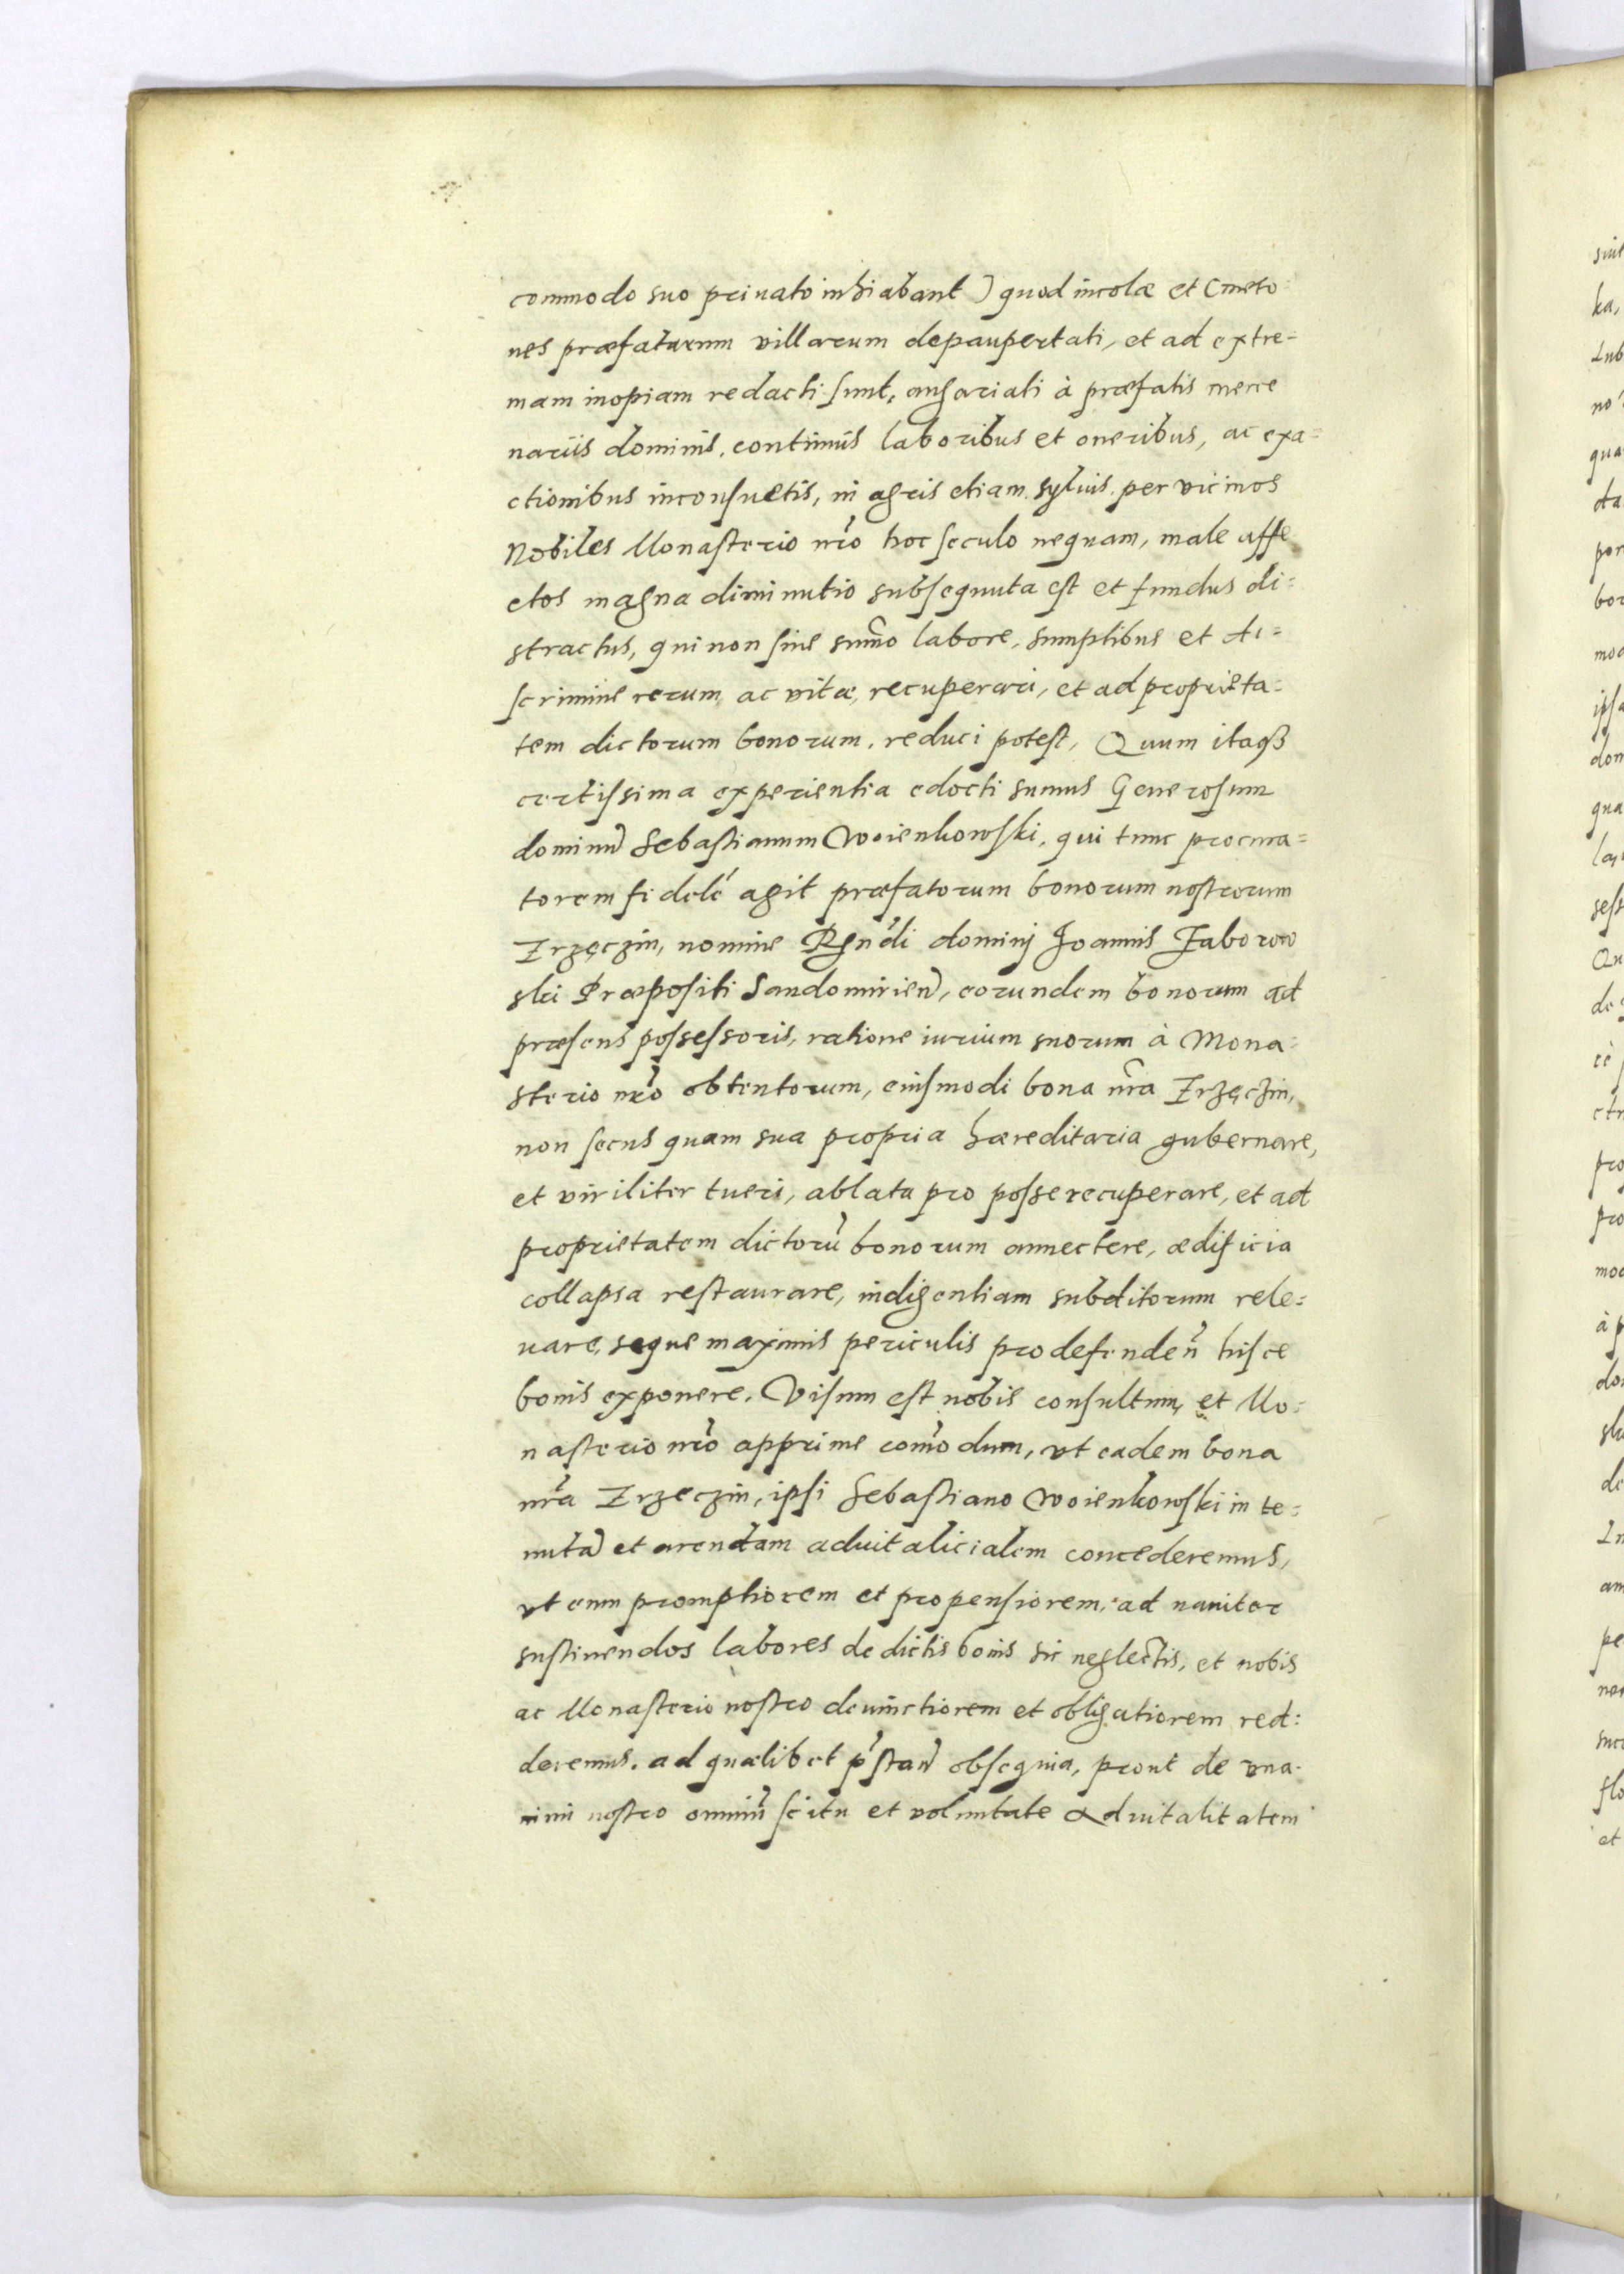 commodo suo priuato inhiabant) quod incolæ et Cmeto:
nes præfatarum villarum depaupertati, et ad extre-
mam inopiam redacti sunt, angariati à præfatis merce
nariis dominis, continuis laboribus et oneribus, ac exa=
ctionibus inconsuetis, in agris etiam syluis per vicinos
Nobiles Monasterio nr̃o hoc seculo nequam, male affe
ctos magna diminutio subsequuta est et fundus di=
stractus, qui non sine sum̃o labore, sumptibus et di=
scrimine rerum, ac vitæ, recuperari, et ad proprieta=
tem dictorum bonorum, reduci potest, Quum itaqȝ
certissima experientia edocti sumus Generosum
dominũ Sebastianum Woienkowski, qui tunc procura=
torem fidelẽ agit præfatorum bonorum nostrorum
Zrzęczin, nomine Rgñdi dominij Joannis Zaborow
ski Præpositi Sandomirieñ, eorundem bonorum ad
præsens possessoris, ratione iurium suorum à Mona=
sterio nr̃o obtentorum, eiusmodi bona nr̃a Zrzęczin,
non secus quam sua propria hæreditaria gubernare,
et viriliter tueri, ablata pro posse recuperare, et ad
proprietatem dictorũ bonorum annectere, ædificia
collapsa restaurare, indigentiam subditorum rele=
uare, seque maximis periculis pro defendeñ hisce
bonis exponere. Visum est nobis consultum, et Mo=
nasterio nr̃o apprime com̃odum, vt eadem bona
nr̃a Zrzeczin, ipsi Sebastiano Woienkowski in te=
nutã et arendam aduitalicialem concederemus,
vt eum promptiorem et propensiorem, ad nauiter
sustinendos labores de dictis bonis sic neglectis, et nobis
ac Monasterio nostro deuinctiorem et obligatiorem red:
deremus. ad quælibet p̃stañ obsequia, prout de vna=
nimi nostro omniũ scitu et voluntate Aduitalitatem